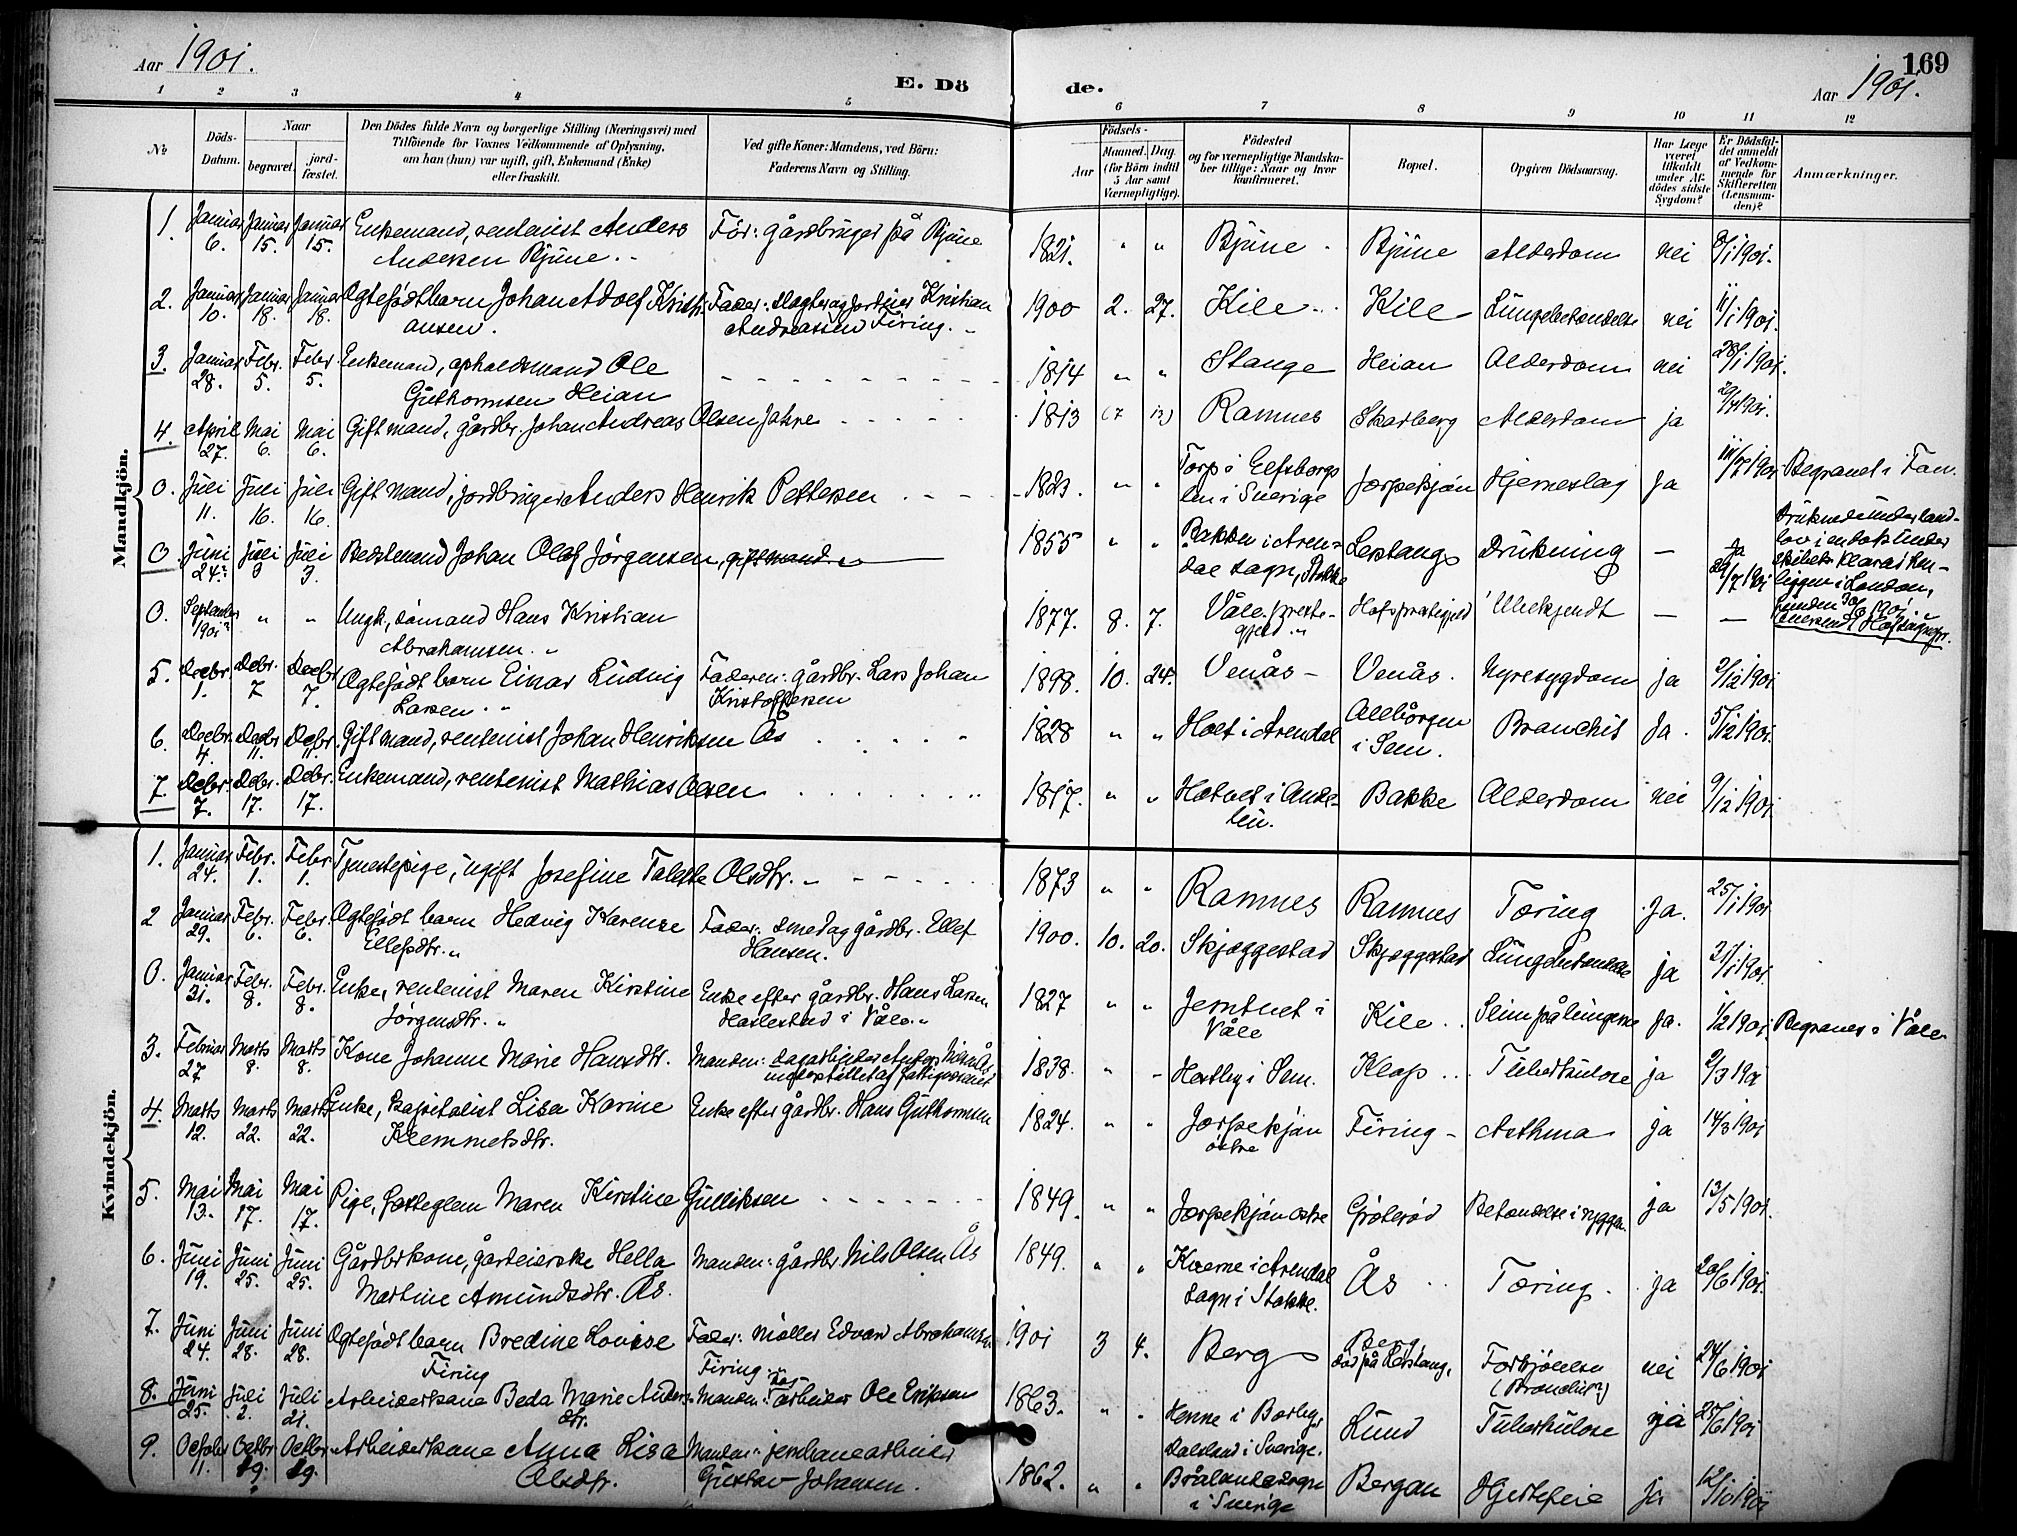 Aar 1901.
E. Dö
de.
Aar 1901.
169
1 2 3 4 5 6 7 8 9 10 11 12
No
Döds-Datum.
Naar
begravet.
jord-fæstet.
Den Dödes fulde Navn og borgerlige Stilling (Næringsvei) med
Tilföiende for Voxnes Vedkommende af Oplysning,
om han (hun) var ugift, gift, Enkemand (Enke)
eller fraskilt.
Ved gifte Koner: Mandens, ved Börn:
Faderens Navn og Stilling.
Födsels-
Aar
Maaned. Dag
(for Börn indtil
5 Aar samt
Værnepligtige).
Födested
og for værnepligtige Mandska-
ber tillige: Naar og hvor
konfirmeret.
Bopæl.
Opgiven Dödsaarsag.
Har Læge
været
tilkaldt
under Af-
dödes sidste
Sygdom?
Er Dödsfal-
det anmeldt
af Vedkom-
mende for
Skifteretten
(Lensman-
den)?
Anmærkninger.
Mandkjön.
1. Januar 6. Januar 15. Januar 15. Enkemand, rentenist Anders Andersen Bjune. För: gårdbruger på Bjune 1821. " " Bjune Bjune Alderdom nei 8/1 1901.
2. Januar 10. Januar 18. Januar 18. Ægtefödt barn Johan Adolf Kristiansen. Fader: Kristian Andreassen Firing. 1900 2. 27. Kile Kile Lungebetændelse nei 11/1 1901.
3. Januar 28. Febr. 5. Febr. 5. Enkemand, opholdsmand Ole Guthormsen Heian 1814 " " Stange Heian Alderdom nei 28/1 1901.
4. April 27. Mai 6. Mai 6. Gift mand, gårdbr. Johan Andreas Olsen Jahre 1813 Ramnes Skarberg Alderdom ja
0. Juli 11. Juli 16. Juli 16. Gift mand, jordbruger Anders Henrik Pettersen " " Torp i Elfsborgs len i Sverige Jerpekjön Hjerneslag Ja Begravet i
0. Juni 24. Juli 3 Juli 3. Bestemand Johan Olaf Jörgensen, gift mand 1855 " " Bakken i Arendal sogn, Stokke Lerstang Drukning — Ja 29/7 1901 Druknede under
0. September 1901? " " Ungk., sömand Hans Kristian Abrahamsen. 1877. 8. 7. Våle prestegjeld Hofs prestegjeld Ubekjendt — —
5. Decbr 1. Debr. 7 Decbr 7. Ægtefödt barn Einar Ludvig Larsen Faderen: gårdbr. Lars Johan Kristoffersen 1898. 10. 24. Venås Venås. Nyresygdom ja 2/12 1901
6. Decbr. 4. Decbr 11. Decbr. 11. Gift mand, rentenist Johan Henriksen Ås 1828 " " Holt i Arendal i Sem. Bronchit Ja. 5/12 1901.
7. Decbr. 7. Debr. 17. Debr. 17. Enkemand, rentenist Mathias Olsen 1817. " " Bakke Alderdom nei 9/12 1901
Kvindekjön.
1. Januar 24. Febr. 1. Febr. 1. Tjenestepige, ugift Josefine Olsdtr. 1873 " " Ramnes Ramnes Tæring Ja. 25/1 1901
2 Januar 29. Febr. 6. Febr. 6. Ægtefödt barn Hedvig Karense Ellefsdtr. Fader: smed og gårdbr. Ellef Hansen. 1900. 10. 20. Skjæggestad Skjæggestad Lungebetændelse ja
0. Januar 31. Febr. 8. Febr. 8. Enke, rentenist Maren Kirstine Jörgensdtr. Enke efter gårdbr. Hans Larsen Haslestad i Våle. 1827 " " Jerntvet i Våle Kile Slim på lungerne ja. 1/2 1901. Begraves i Våle
3. Februar 27 Marts 8. Marts 8. Kone Johanne Marie Hansdtr. Manden: dagarbeider 1838. " Hertley i Sem. Klop Tuberkulose ja 2/3 1901
4. Marts 12. Marts 22. Marts 22. Enke, kapitalist Lisa Karine Klemmetsdtr. Enke efter gårdbr. Hans Guthormsen 1824. " " Jerpekjön östre Firing Asthma ja 14/3 1901
5. Mai 13. Mai 17. Mai 17. Pige, Maren Kirstine Gulliksen 1849. " " Jerpekjön östre Gröteröd Betændelse i ryggen ja 13/5 1901.
6. Juni 19. Juni 25. Juni 25. Gårdbrkone, gårdeierske Hella Martine Amundsdtr. Ås. Manden: gårdbr. Nils Olsen Ås 1849. " " Kverne i Arendal sogn i Stokke. Ås Tæring. ja 20/6 1901.
7. Juni 24. Juni 28. Juni 28. Ægtefödt barn Bredine Lovise Firing Fader: Möller Edvard Abrahamsen Firing 1901 3 4. Berg Berg, död på Lerstang. Forkjölelse nei 24/6 1901
8. Juni 25. Juli 2. Juli 21. Arbeiderkone Beda Marie Andersdtr. Manden: Dagarbeider Ole Eriksen 1863. " " Dalsland i Sverige. Lund Tuberkulose ja 25/6 1901
9. October 11. Octbr 19. Octbr 19. Arbeiderkone Anna Lisa Olsdtr. Manden: jernbanearbeider Gustav Johansen. 1862. " " Brålanda sogn i Sverige Bergan Hjertefeil ja 12/10 1901